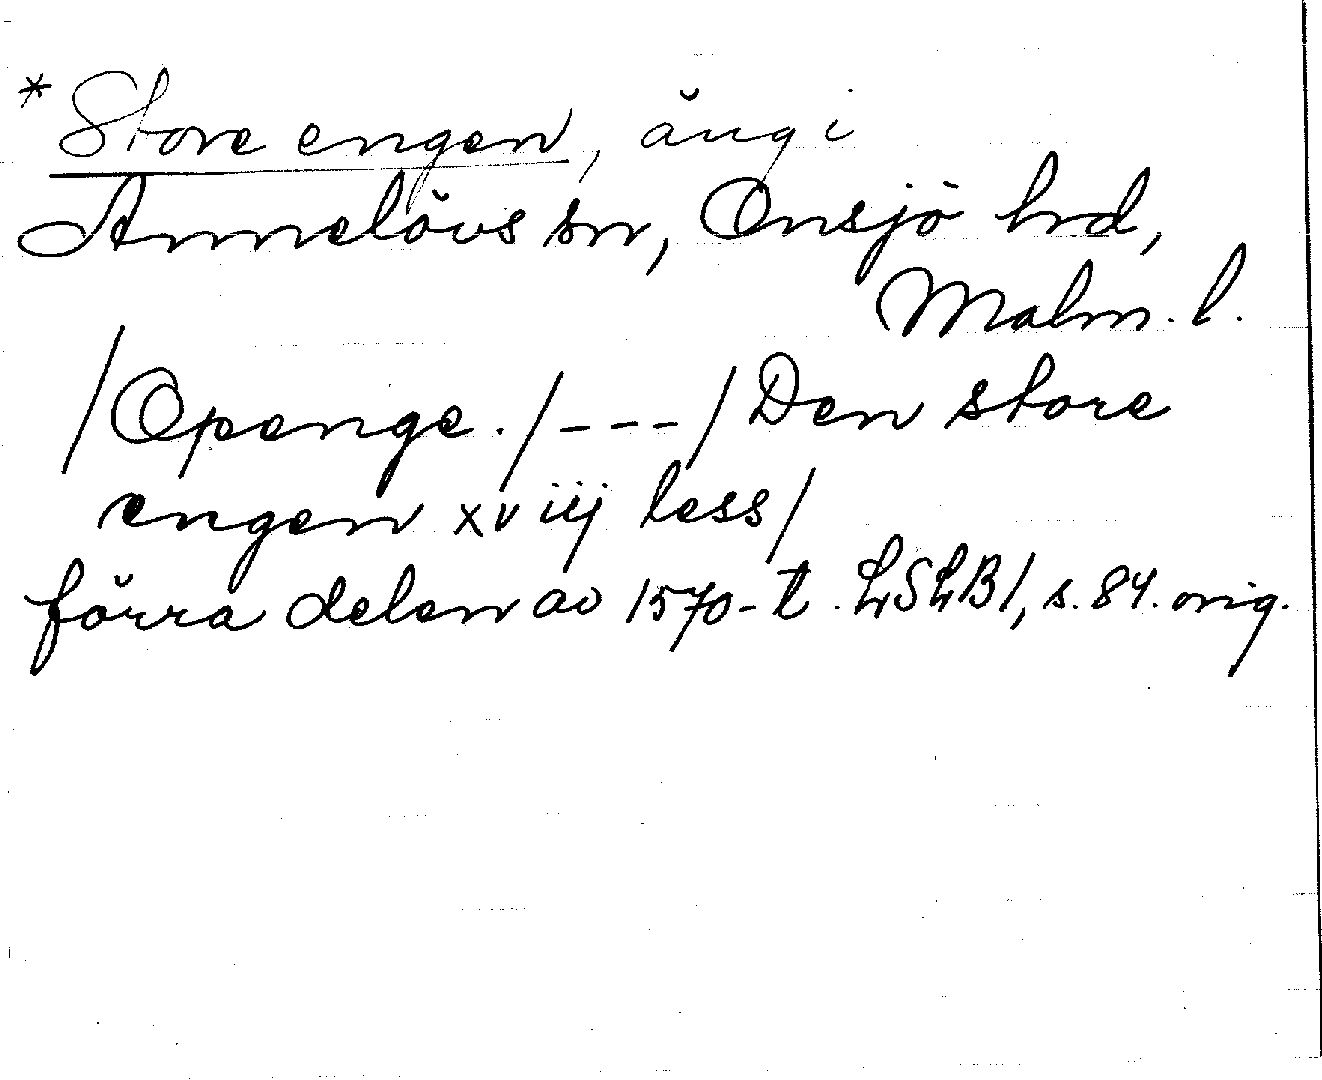 * Store engen, äng i
Annelövs sn, Onsjö hrd,
Malm. l.
/Openge./---/Den store
engen xviij less/
förra delen av 1570-t. LSLB1, s. 84. orig.